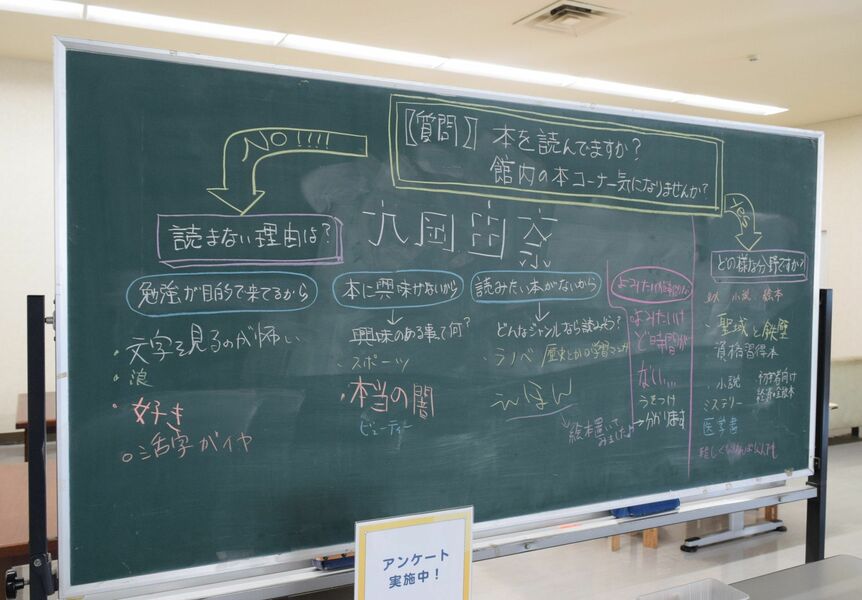 【質問】 本を読んでますか?
館内の本コーナー気になりませんか?
NO!!!!
Yes
読まない理由は?
どの様な分野ですか?
勉強が目的で来てるから
・文字を見るのが怖い
・浪
・好き
○活字がイヤ
本に興味がないから
↓
興味のある事って何?
・スポーツ
・本当の闇
ビューティー
読みたい本がないから
↓
どんなジャンルなら読みそう?
・ラノベ 歴史とかの学習マンガ
えほん
絵本置いてみました♪
よみたいけ
ど時間が
ない…
→分かります
小説・絵本
・聖域と鉄壁
資格習得本
・小説
ミステリー
医学書
アンケート
実施中!